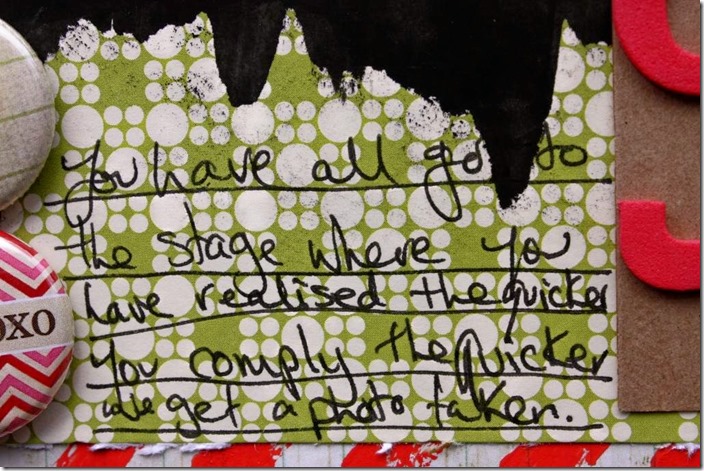 You have all got to
the stage where you
have realised the quicker
You comply the quicker
we get a photo taken.
OXO